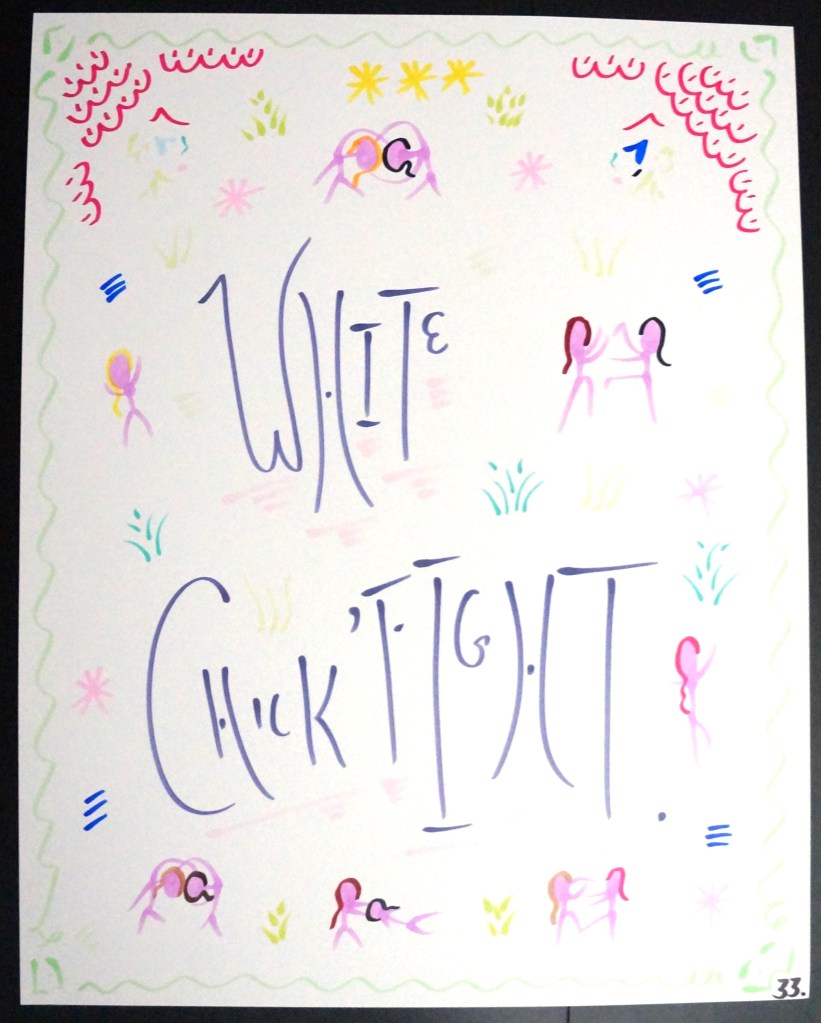 WHITE
CHICK'FIGHT.
33.